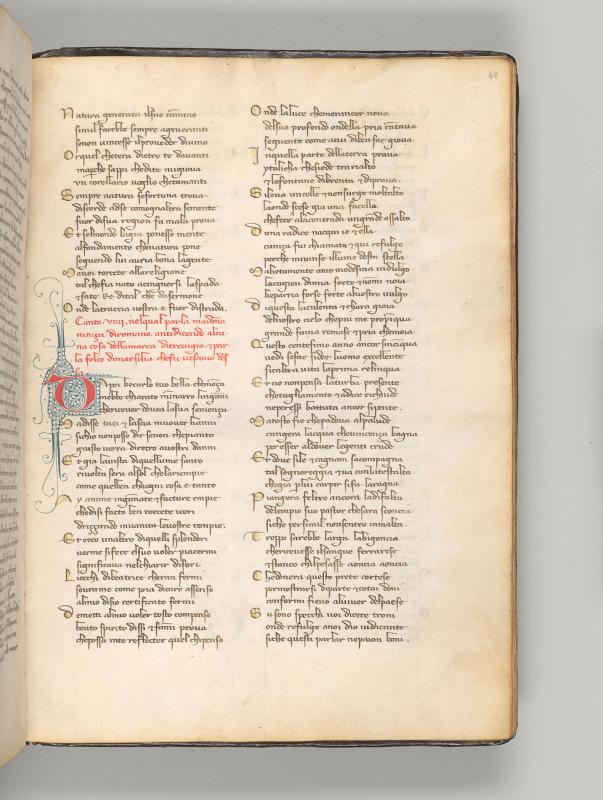 Natura generata ilsuo camino
simil farebbe sempre ageneranti
senon uincesse ilproueder diuino
Or quel cheti era dietro te dauanti
ma perche sappi chedite migioua
un corellario uoglio chetamanti
Sempre natura se fortuna troua
discorde adse comognaltra semente
fuor disua region fa mala proua
Et sel mondo la giu ponesse mente
al fondamento che natura pone
seguendo lui auria bona la gente
Ma uoi torcete alla religione
tal che fia nato a cingnersi la spada
et fate Re di tal che da sermone
Onde la traccia uostra e fuor di strada
Canto .viiij. nel qual parla madona
cuniça di romano. antidicendo alcu
na cosa della marca di treuigio et par
la folco di marsilia che fu uescouo des
sa
Dapoi che carlo tuo bella clemença
mebbe chiarato mi narro linganni
che riceuer douea la sua semença
Ma disse taci et lascia muouer li anni
si chio non posso dir senon che pianto
giusto uerra dietro a uostri danni
Et gia la uista di quel lume santo
riuolta sera al sol che la riempie
come quel ben cha ogni cosa e tanto
Ay anime ingannate et facture empie
che da si facto ben torcete i cori
driççando in uanita le uostre tempie.
Et ecco unaltro di quelli splendori
uerme si fece el suo uoler piacermi
significaua nel chiarir di fori.
Li occhi di beatrice cheran fermi
soura me come pria di caro assenso
al mio disio certificato fermi
De metti al mio uoler tosto compenso
beato spirito dissi et fammi proua
che possi in te reflecter quel chi penso
69
Onde la luce che mera ancor noua
del suo profondo ondella pria cantaua
seguente come a cui di ben far gioua.
In quella parte della terra praua
ytalica che siede tra rialto
et le fontane di brenta et di piaua.
Si leua un colle et non surge molto alto
la onde scese gia una facella
che fece a la contrada un grande assalto
Duna radice nacqui io et ella
cuniça fui chiamata et qui refulgo
perche mi uinse il lume desta stella
Ma lietamente a me medesma indulgo
la cagion di mia sorte et non mi noia
che parria forse forte al uostro uulgo.
Di questa luculenta et chara gioia
del nostro cielo che piu me propiqua
grande fama remase et pria che moia
Questo centesimo anno ancor sincinqua
uedi se far si dee luomo excellente
si caltra uita la prima relinqua
Et cio non pensa la turba presente
che tagliamento et adice richiude
ne per esser battuta ancor si pente.
Ma tosto fie che padoua al palude
cangera lacqua che uincença bagna
per esser al douer le genti crude
Et doue sile et cagnan saccompagna
tal segnoreggia et ua con la testa alta
che gia per lui carpir si fa la ragna
Piangera feltro ancora la difalta
dellempio suo pastor che sara sconcia
si che per simil non sentro in malta.
Troppo sarebbe larga la bigoncia
che riceuesse il sangue ferrarese
et stanco chil pesasse a oncia a oncia
Che donera questo prete cortese
per mostrarsi di parte et cotai doni
conformi fieno al uiuer del paese
Su sono specchi uoi dicete troni
onde refulge a noi dio iudicante
si che questi parlar ne paion boni.